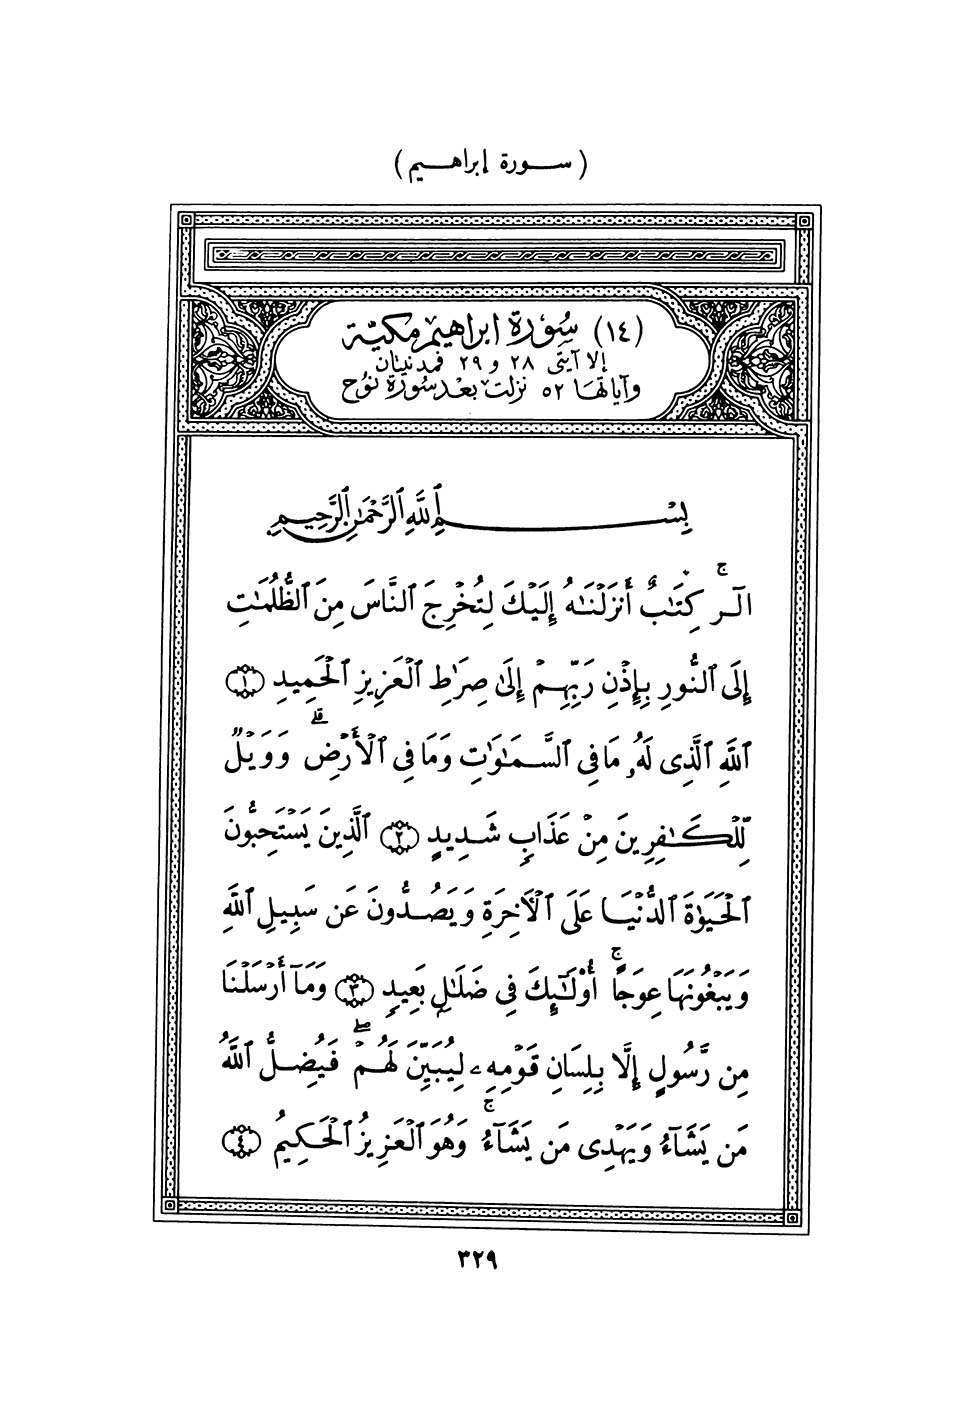 ( ســورة إبراهــيم )
(١٤) سُورَة ابراهيم مكيّة
إلا آيتى ٢٨ و ٢٩ فمدنيتان
وآياتها ٥٢ نزلت بعد سورة نوح
بِسْــــــمِ ٱللَّهِ ٱلرَّحْمَٰنِ ٱلرَّحِيمِ
الٓـرۚ كِتَٰبٌ أَنزَلْنَٰهُ إِلَيْكَ لِتُخْرِجَ ٱلنَّاسَ مِنَ ٱلظُّلُمَٰتِ
إِلَى ٱلنُّورِ بِإِذْنِ رَبِّهِمْ إِلَىٰ صِرَٰطِ ٱلْعَزِيزِ ٱلْحَمِيدِ ١
ٱللَّهِ ٱلَّذِى لَهُۥ مَا فِى ٱلسَّمَٰوَٰتِ وَمَا فِى ٱلْأَرْضِۗ وَوَيْلٌ
لِّلْكَٰفِرِينَ مِنْ عَذَابٍ شَدِيدٍ ٢ ٱلَّذِينَ يَسْتَحِبُّونَ
ٱلْحَيَوٰةَ ٱلدُّنْيَا عَلَى ٱلْأَخِرَةِ وَيَصُدُّونَ عَن سَبِيلِ ٱللَّهِ
وَيَبْغُونَهَا عِوَجًاۚ أُوْلَٰٓئِكَ فِى ضَلَٰلٍۭ بَعِيدٍ ٣ وَمَآ أَرْسَلْنَا
مِن رَّسُولٍ إِلَّا بِلِسَانِ قَوْمِهِۦ لِيُبَيِّنَ لَهُمْۖ فَيُضِلُّ ٱللَّهُ
مَن يَشَآءُ وَيَهْدِى مَن يَشَآءُۚ وَهُوَ ٱلْعَزِيزُ ٱلْحَكِيمُ ٤
٣٢٩